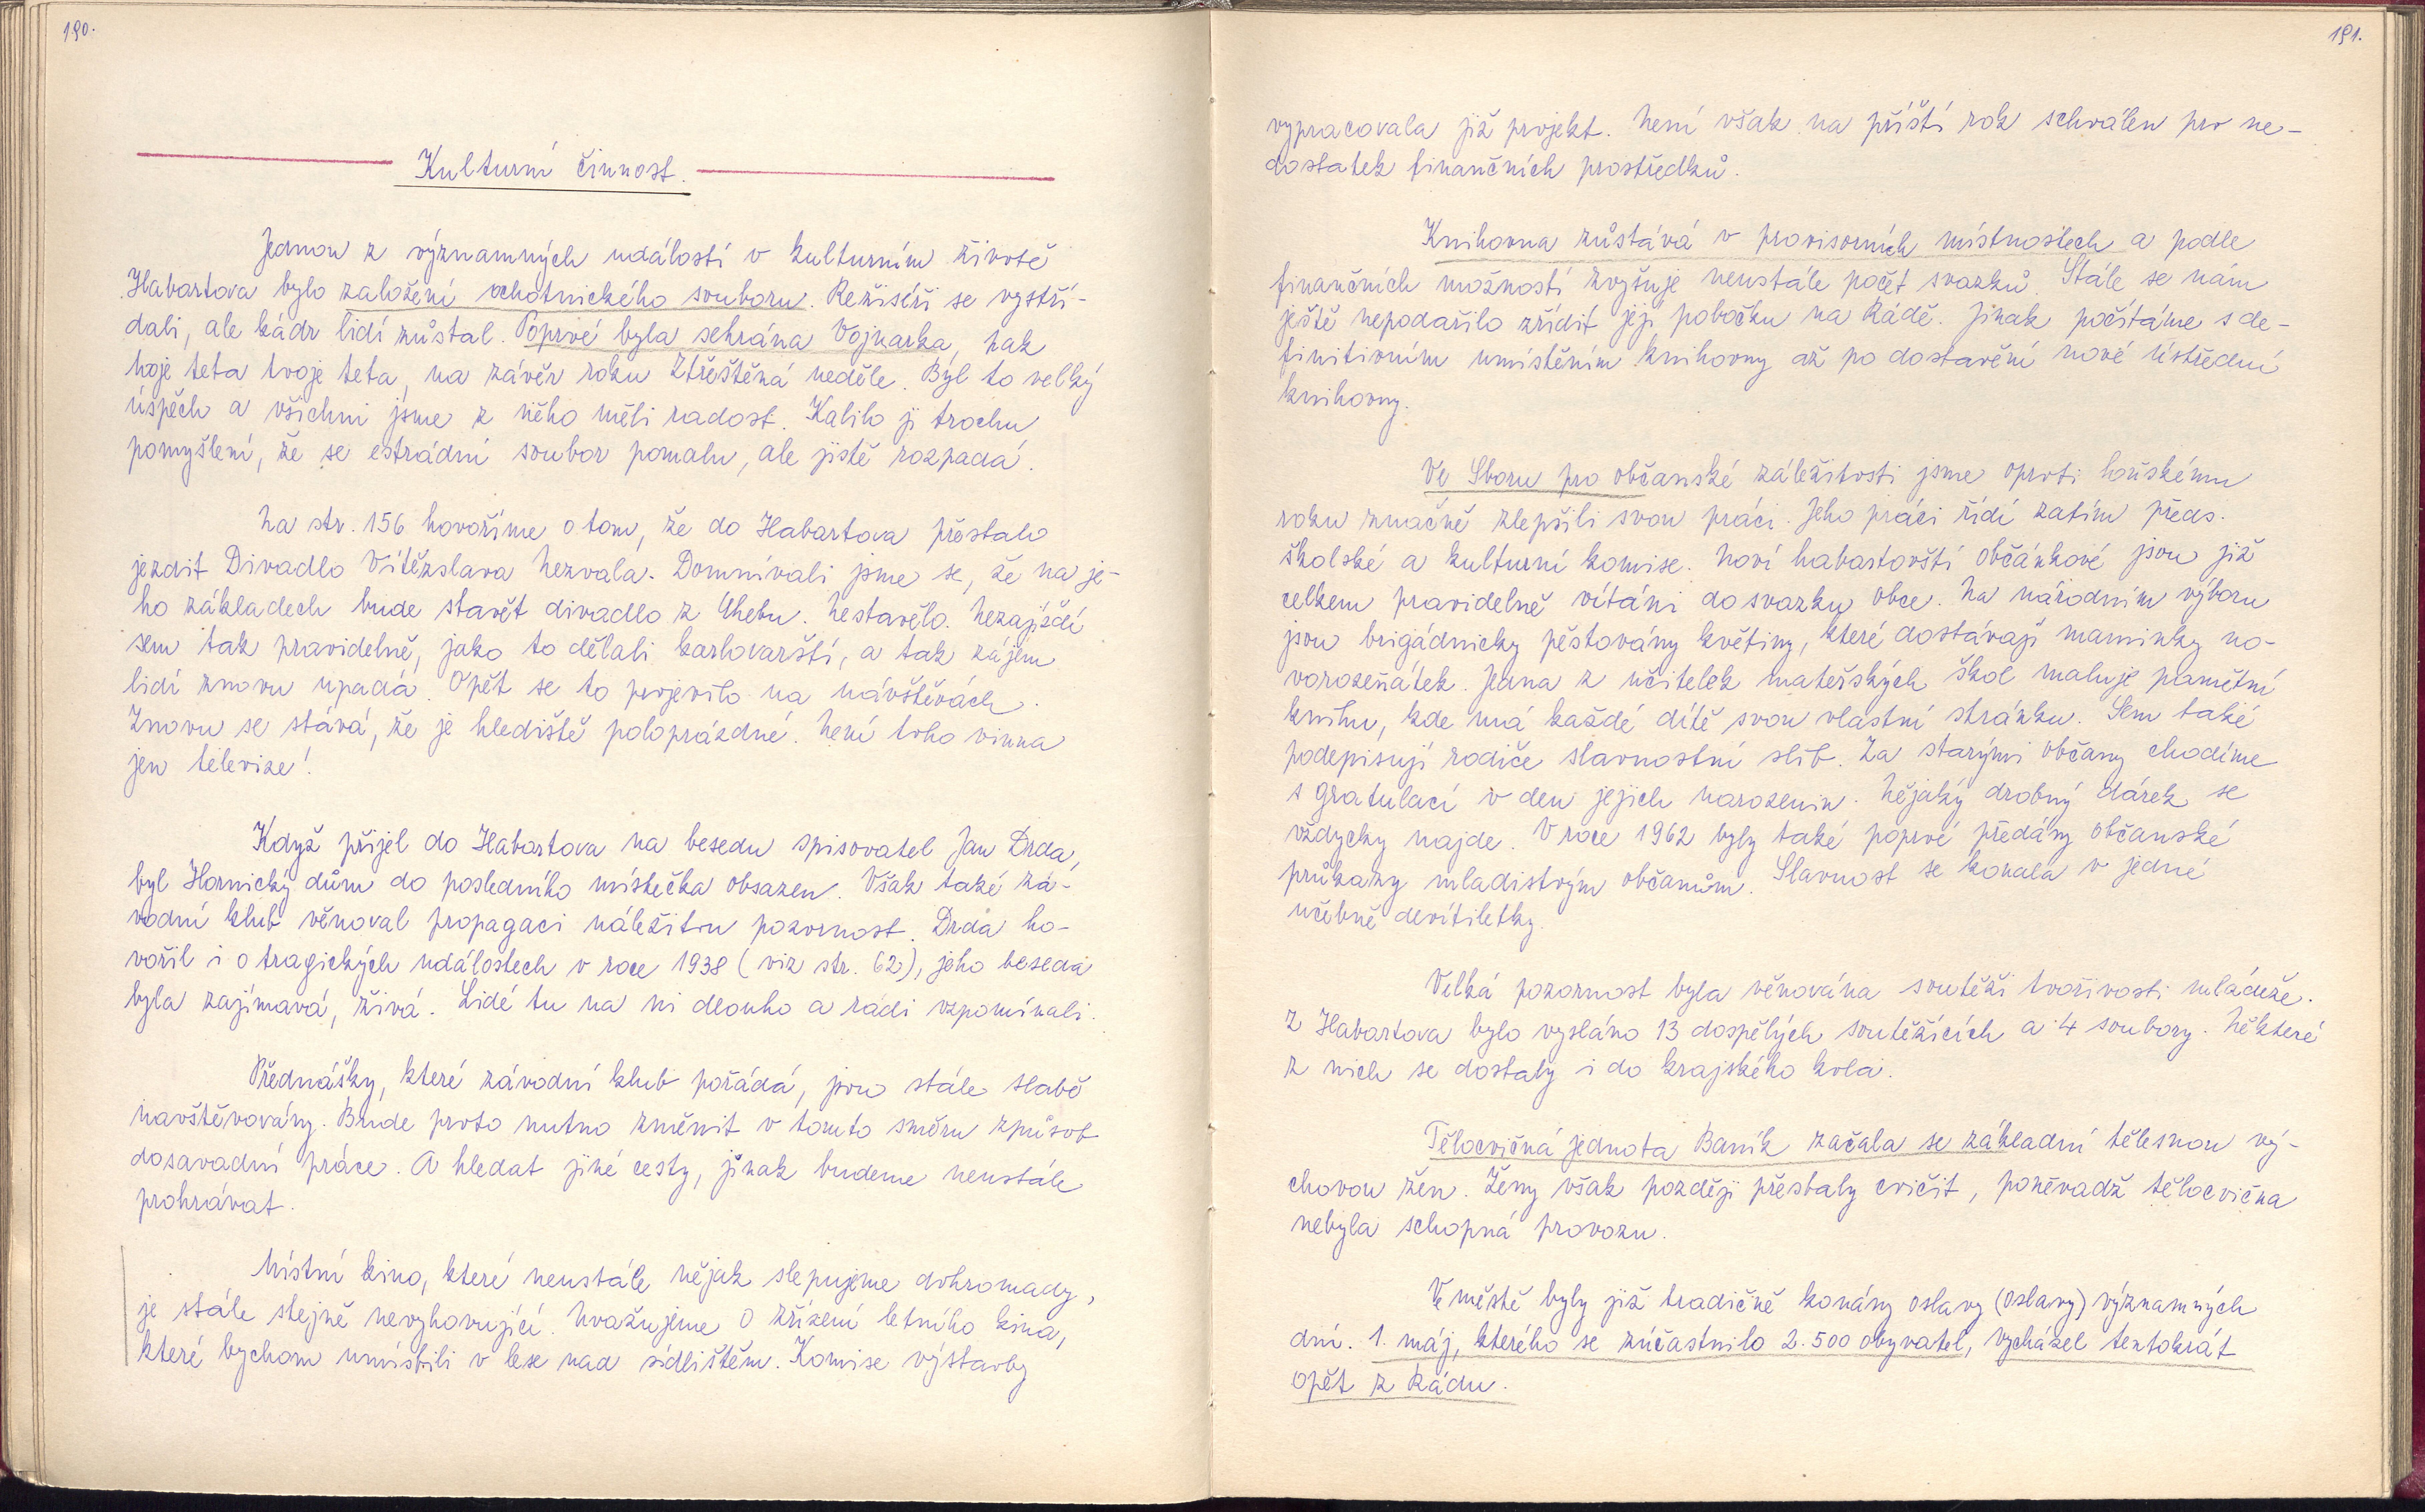 190.
Kulturní činnost.
Jednou z významných událostí v kulturním životě
Habartova bylo založení ochotnického souboru. Režiséři se vystří-
dali, ale kádr lidí zůstal. Poprvé byla sehrána Vojnarka, pak
moje teta tvoje teta, na závěr roku Ztřeštěná neděle. Byl to velký
úspěch a všichni jsme z něho měli radost. Kalilo ji trochu
pomyšlení, že se estrádní soubor pomalu, ale jistě rozpadá.
Na str. 156 hovoříme o tom, že do Habartova přestalo
jezdit Divadlo Vítězslava Nezvala. Domnívali jsme se, že na je-
ho základech bude stavět divadlo z Chebu. Nestavělo. Nezajíždí
sem tak pravidelně, jako to dělali karlovarští, a tak zájem
lidí znovu upadá. Opět se to projevilo na návštěvách.
Znovu se stává, že je hlediště poloprázdné. Není toho vinna
jen televize!
Když přijel do Habartova na besedu spisovatel Jan Drda,
byl Hornický dům do posledního místečka obsazen. Však také zá-
vodní klub věnoval propagaci náležitou pozornost. Drda ho-
vořil i o tragických událostech v roce 1938 (viz str. 62), jeho beseda
byla zajímavá, živá. Lidé tu na ni dlouho a rádi vzpomínali.
Přednášky, které závodní klub pořádá, jsou stále slabě
navštěvovány. Bude proto nutno změnit v tomto směru způsob
dosavadní práce. A hledat jiné cesty, jinak budeme neustále
prohrávat.
Místní kino, které neustále nějak slepujeme dohromady,
je stále stejně nevyhovující. Uvažujeme o zřízení letního kina,
které bychom umístili v lese nad sídlištěm. Komise výstavby
191.
vypracovala již projekt. Není však na příští rok schválen pro ne-
dostatek finančních prostředků.
Knihovna zůstává v provisorních místnostech a podle
finančních možností zvyšuje neustále počet svazků. Stále se nám
ještě nepodařilo zřídit její pobočku na Kádě. Jinak počítáme s de-
finitivním umístěním knihovny až po dostavění nové ústřední
knihovny.
Ve Sboru pro občanské záležitosti jsme oproti loňskému
roku značně zlepšili svou práci. Jeho práci řídí zatím předs.
školské a kulturní komise. Noví habartovští občánkové jsou již
celkem pravidelně vítáni do svazku obce. Na národním výboru
jsou brigádnicky pěstovány květiny, které dostávají maminky no-
vorozeňátek. Jedna z učitelek mateřských škol maluje pamětní
knihu, kde má každé dítě svou vlastní stránku. Sem také
podepisují rodiče slavnostní slib. Za starými občany chodíme
s gratulací v den jejich narozenin. Nějaký drobný dárek se
vždycky najde. V roce 1962 byly také poprvé předány občanské
průkazy mladistvým občanům. Slavnost se konala v jedné
učebně devítiletky.
Velká pozornost byla věnována soutěži tvořivosti mládeže.
Z Habartova bylo vysláno 13 dospělých soutěžících a 4 soubory. Některé
z nich se dostaly i do krajského kola.
Tělocvičná jednota Baník začala se základní tělesnou vý-
chovou žen. Ženy však později přestaly cvičit, poněvadž tělocvična
nebyla schopná provozu.
Ve městě byly již tradičně konány oslavy (oslavy) významných
dní. 1. máj, kterého se zúčastnilo 2.500 obyvatel, vycházel tentokrát
opět z Kádu.